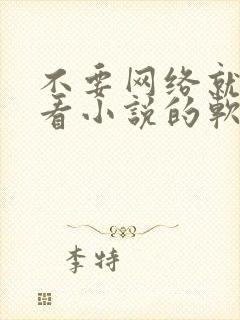 不要网络就
看小说的软
李特